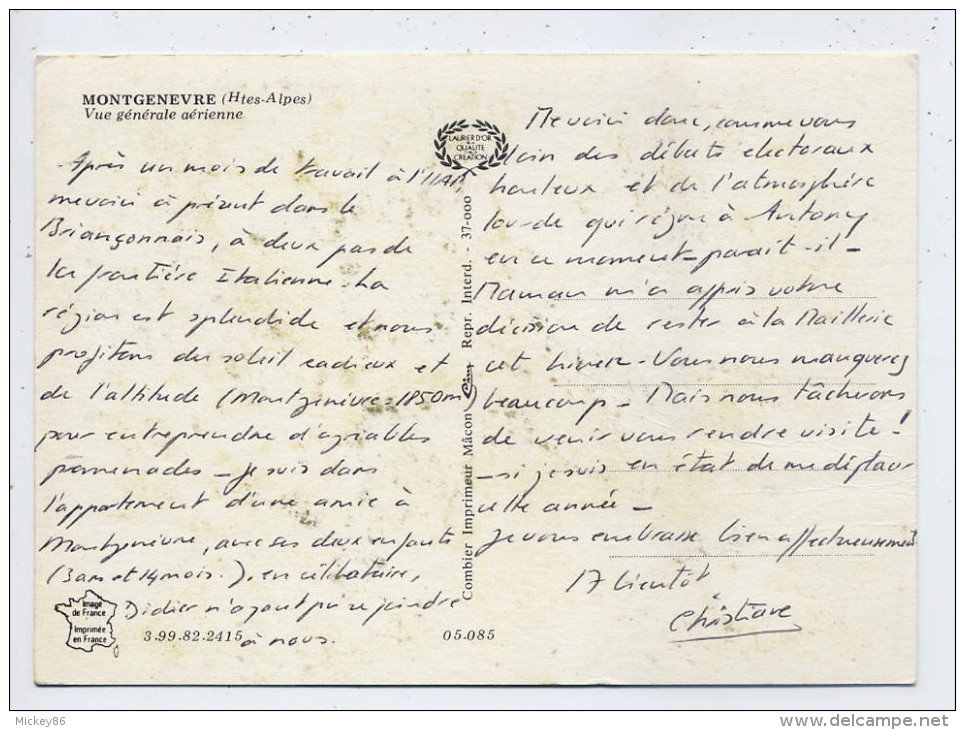 MONTGENEVRE (Htes-Alpes)
Vue générale aérienne
Après un mois de travail à l'IIAP,
me voici à présent dans le
Briançonnais, à deux pas de
la frontière Italienne. La
région est splendide et nous
profitons du soleil radieux et
de l'altitude (Montgenèvre = 1850m)
pour entreprendre d'agréables
promenades _ Je suis dans
l'appartement d'une amie à
Montgenèvre, avec ses deux enfants
(3 ans et 14 mois.), en célibataire,
Didier n'ayant pu se joindre
à nous.
Image
de France
Imprimée
en France
3.99.82.2415
05.085
LAURIER D'OR
DE LA
QUALITE
CREATION
Combier Imprimeur Mâcon Cim Repr. Interd. - 37-000
Me voici donc, comme vous
loin des débuts électoraux
houleux et de l'atmosphère
lourde qui règne à Antony
en ce moment - paraît-il -
Maman m'a appris votre
décision de rester à la Maillerie
cet hiver - Vous nous manquerez
beaucoup - Mais nous tâcherons
de venir vous rendre visite !
- si je suis en état de me déplacer
cette année -
Je vous embrasse bien affectueusement
A bientôt
Christiane
Mickey86
delcampe.net